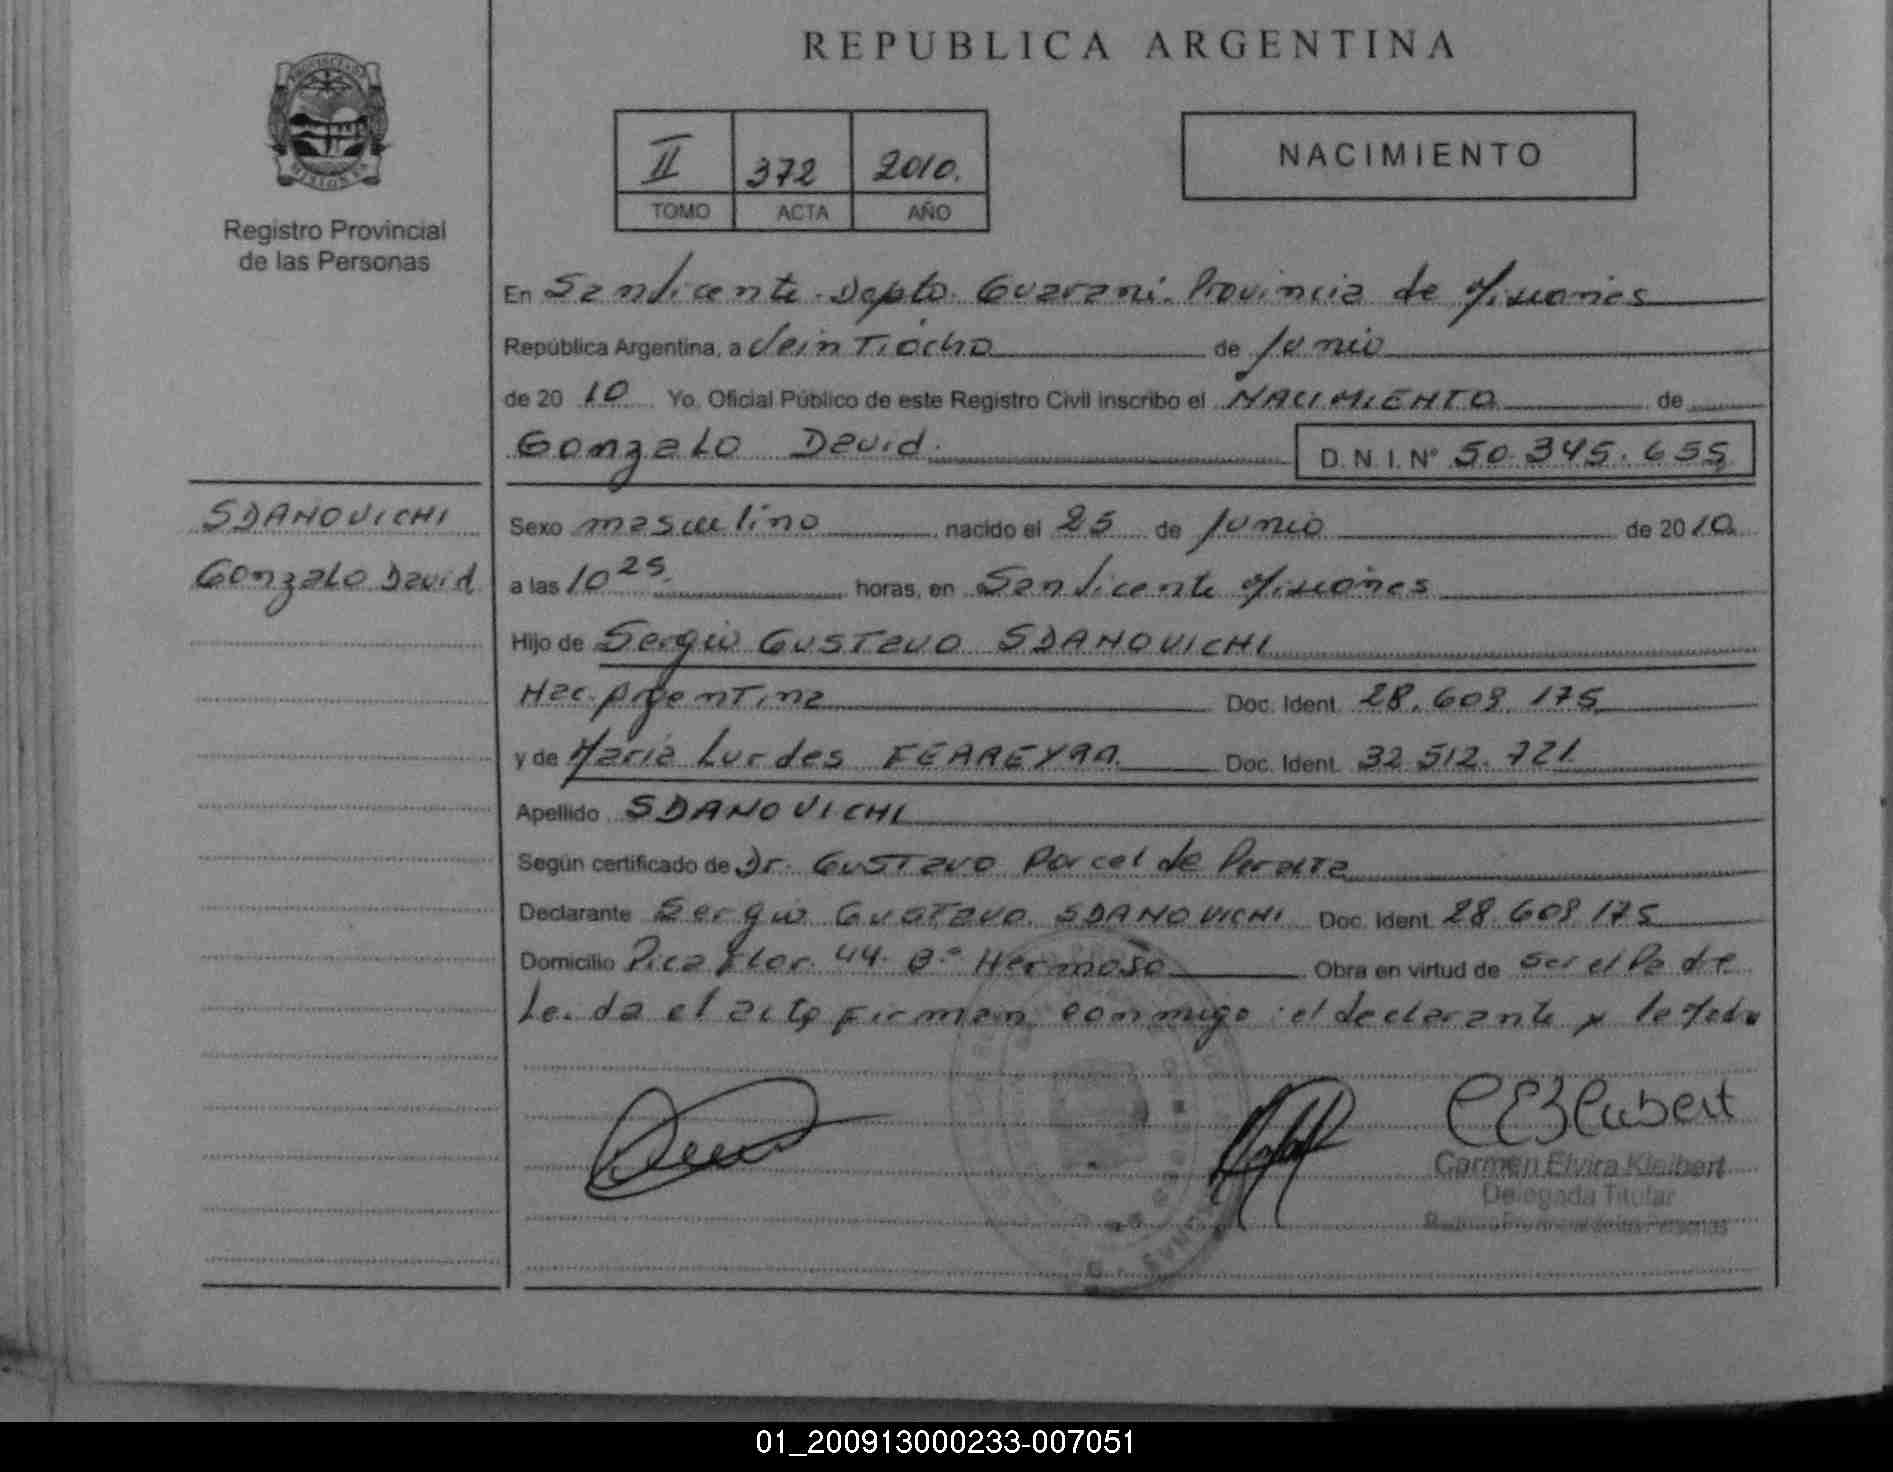 REPUBLICA ARGENTINA
PROVINCIA DE
MISIONES
Registro Provincial
de las Personas
II 372 2010.
TOMO ACTA AÑO
NACIMIENTO
En San Vicente. Depto. Guarani. Provincia de Misiones
República Argentina, a Veintiocho de Junio
de 20 10 Yo, Oficial Público de este Registro Civil inscribo el NACIMIENTO de
Gonzalo David. D. N. I. Nº 50.345.655
SDANOVICHI
Gonzalo David
Sexo masculino nacido el 25 de Junio de 2010
a las 10 25. horas, en San Vicente Misiones
Hijo de Sergio Gustavo SDANOVICHI
Nac. Argentina Doc. Ident. 28.609.175
y de Maria Lurdes FERREYRA. Doc. Ident. 32.512.721
Apellido SDANOVICHI
Según certificado de Dr. Gustavo Porcel de Peralta
Declarante Sergio Gustavo SDANOVICHI Doc. Ident. 28.609.175
Domicilio Picaflor 44. Bº Hermoso Obra en virtud de ser el Padre
Leida el acta firman conmigo el declarante y la
CEKleibert
Carmen Elvira Kleibert
Delegada Titular
Registro Provincial de las Personas
01_200913000233-007051